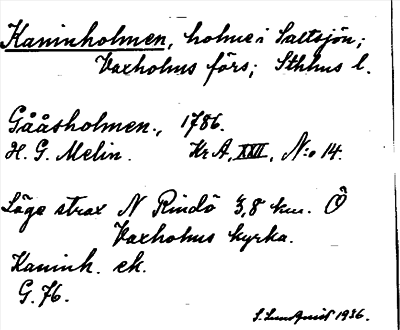 Kaninholmen, holme i Saltsjön;
Vaxholms förs; Sthlms l.
Gååsholmen., 1786.
H. G. Melin. Kr A, XXII, N:o 14.
Läge strax N Rindö 3,8 km. Ö
Vaxholms kyrka.
Kaninh. ek.
G. 76.
S. Lundquist 1936.